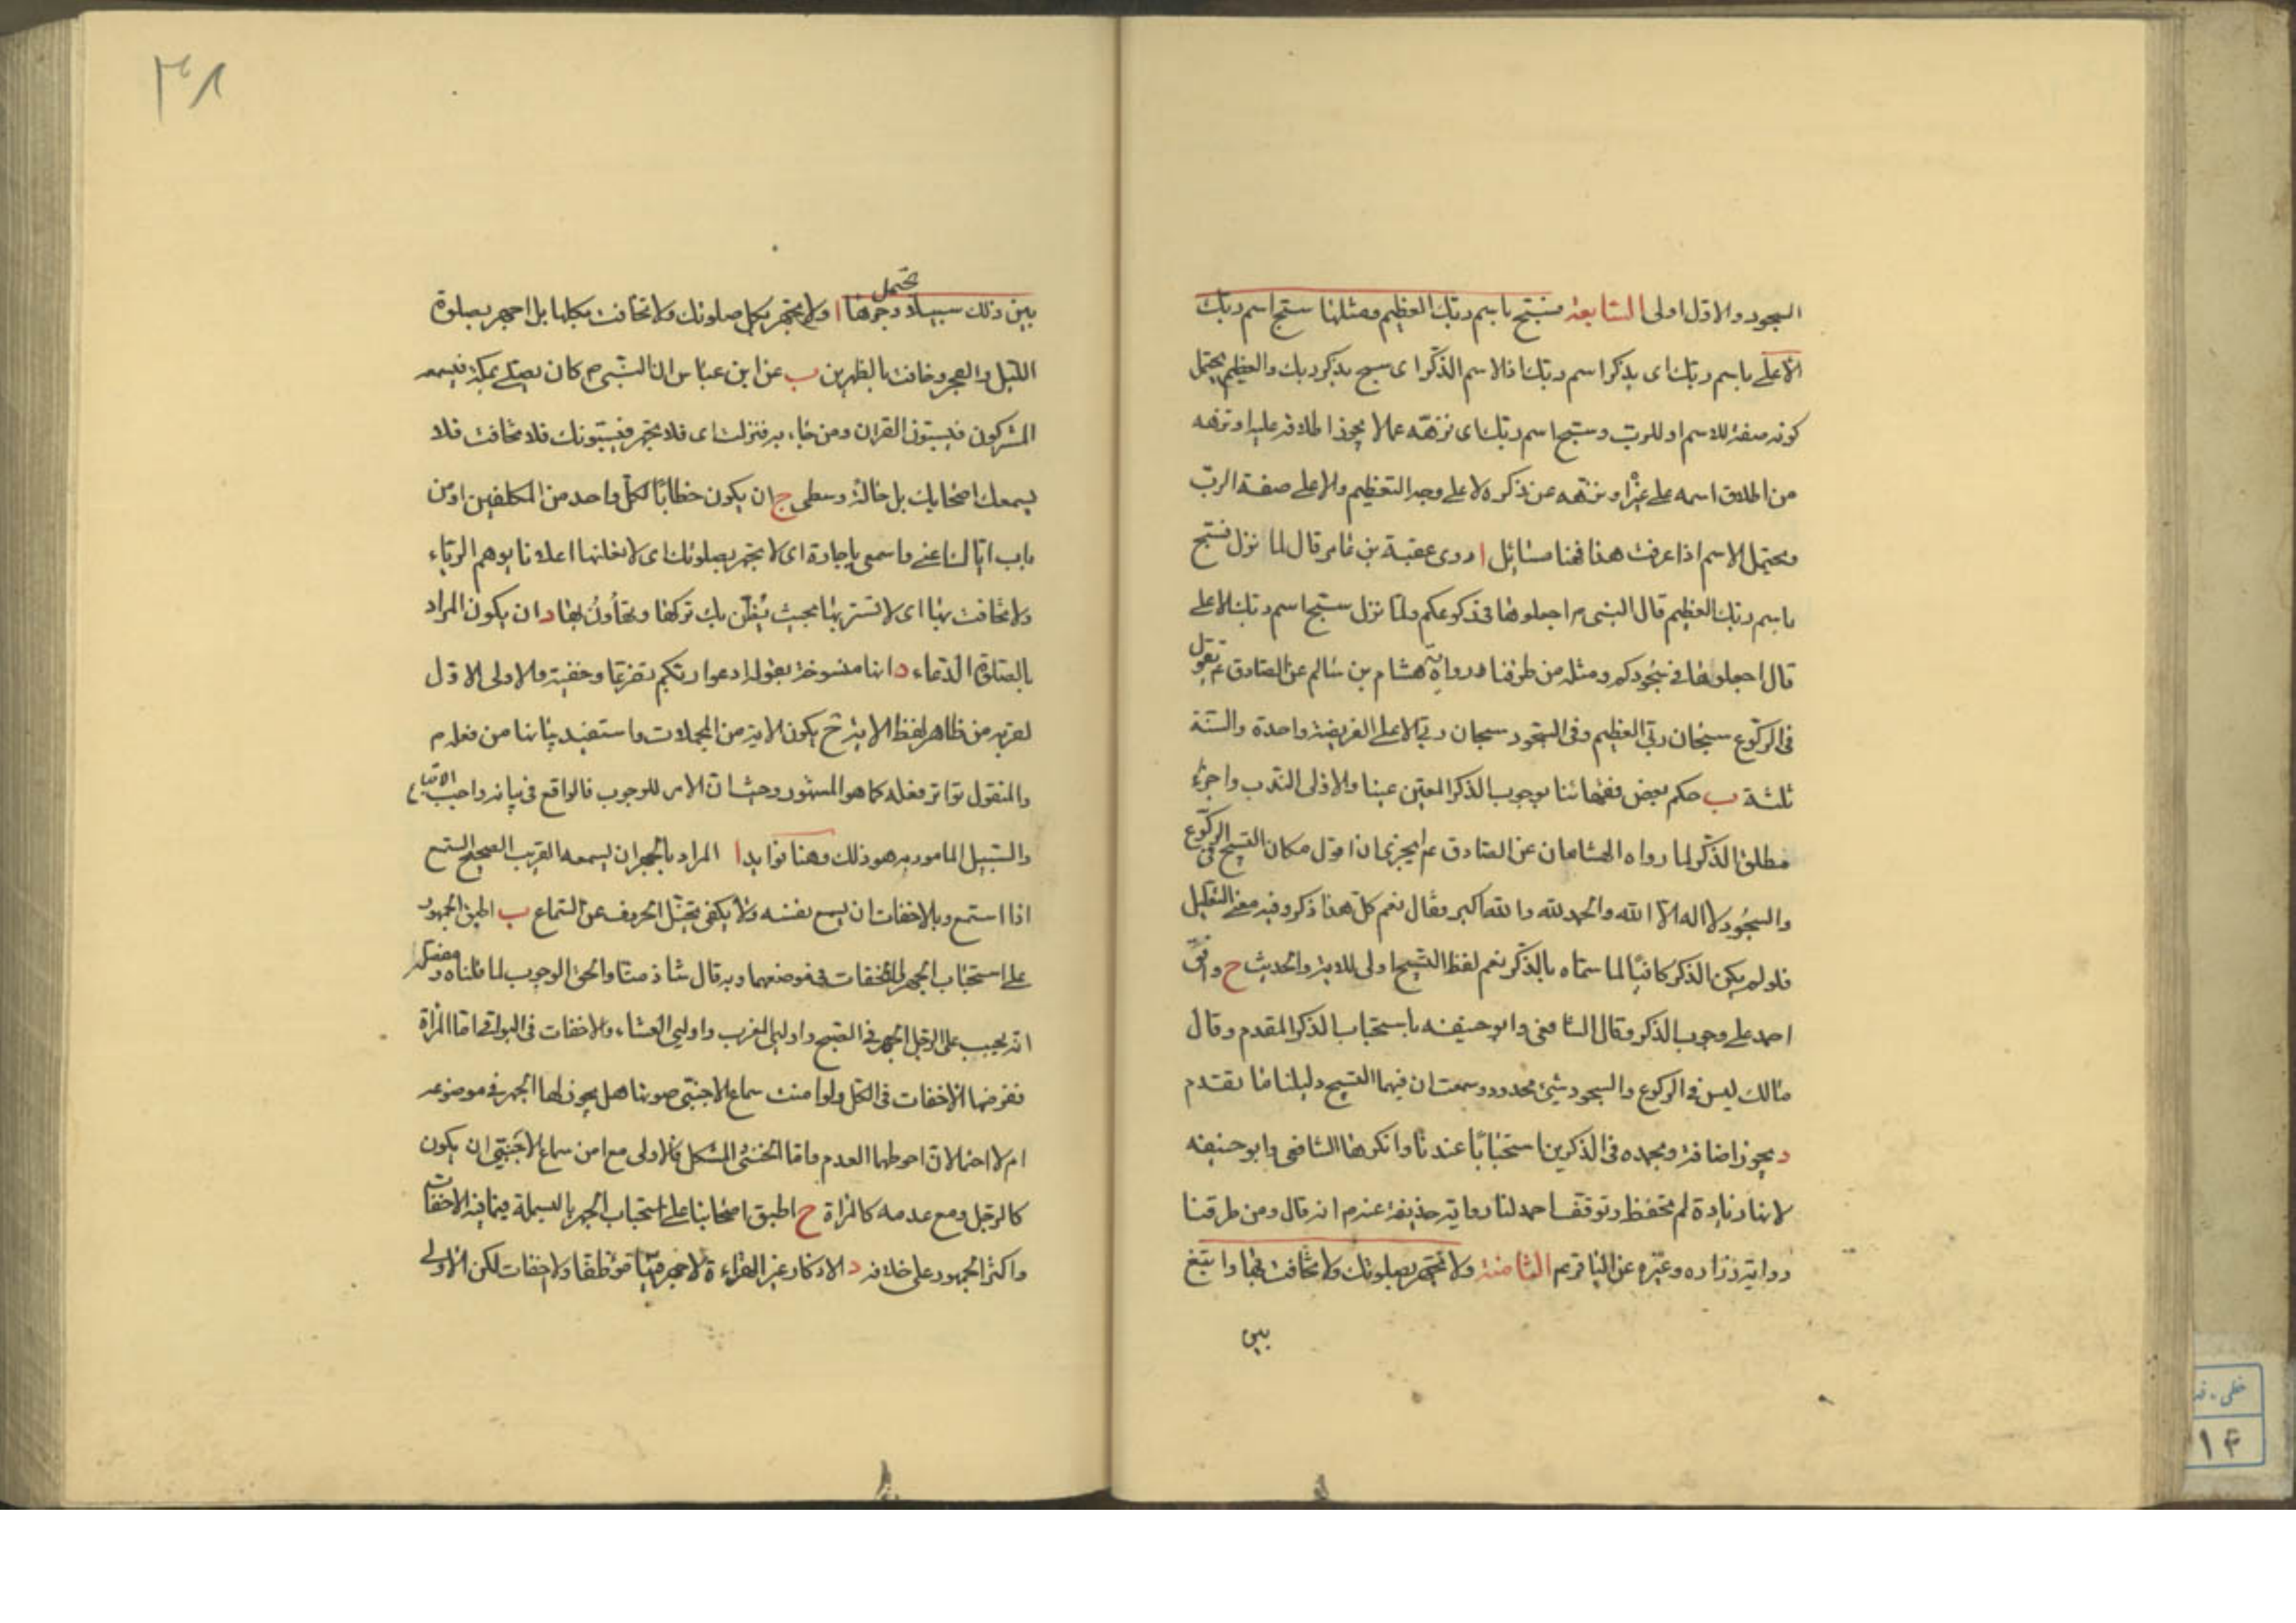 السجود والاول اولى السابعة فسبح باسم ربك العظيم ومثلها سبح اسم ربك
الاعلى باسم ربك اى بذكر اسم ربك فالاسم الذكر اى سبح بذكر ربك والعظيم يحتمل
كونه صفة للاسم او للرب وسبح اسم ربك اى نزهه عما لا يجوز اطلاقه عليه او نزهه
من اطلاق اسمه على غيره او نزهه عن ذكره لا على وجه التعظيم والاعلى صفة الرب
ويحتمل الاسم اذا عرفت هذا فهنا مسائل ا روى عقبة بن عامر قال لما نزل فسبح
باسم ربك العظيم قال النبى م اجعلوها فى ركوعكم ولما نزل سبح اسم ربك الاعلى
قال اجعلوها فى سجودكم ومثله من طرقنا رواية هشام بن سالم عن الصادق ع تقول
فى الركوع سبحان ربى العظيم وفى السجود سبحان ربى الاعلى الفريضة واحدة والسنة
ثلثة ب حكم بعض فقهائنا بوجوب الذكر المعين عينا والاولى الندب واجزاء
مطلق الذكر لما رواه الهشامان عن الصادق ع ايجزى ان اقول مكان التسبيح فى الركوع
والسجود لا اله الا الله والحمد لله والله اكبر فقال نعم كل هذا ذكر وفيه معنى التعليل
فلو لم يكن الذكر كافيا لما سماه بالذكر نعم لفظ التسبيح اولى للاية والحديث ج وافق
احمد على وجوب الذكر وقال الشافعى وابو حنيفه باستحباب الذكر المقدم وقال
مالك ليس فى الركوع والسجود شيئ محدود وسمعت ان فيهما التسبيح دليلنا ما تقدم
د يجوز اضافة وبحمده فى الذكرين استحبابا عندنا وانكرها الشافعى وابو حنيفه
لانها زيادة لم تحفظ وتوقف احمد لنا رواية حذيفة عنه م انه قال ومن طرقنا
رواية زراره وغيره عن الباقر ع الثامنة ولا تجهر بصلوتك ولا تخافت بها وابتغ
بين
بين ذلك سبيلا وجوهنا تحتمل ا ولا تجهر بكل صلوتك ولا تخافت بكلها بل اجهر بصلوة
الليل والفجر وخافت بالظهرين ب عن ابن عباس ان النبى م كان يصلى بمكة فيسمعه
المشركون فيسبون القران ومن جاء به فنزلت اى فلا تجهر فيسبونك فلا تخافت فلا
يسمعك اصحابك بل حالة وسطى ج ان يكون خطابا لكل واحد من المكلفين او من
باب اياك اعنى واسمعى يا جارة اى لا تجهر بصلوتك اى لا تعلنها اعلانا يوهم الرياء
ولا تخافت بها اى لا تستر بها بحيث يظن بك تركها وتهاون بها د ان يكون المراد
بالصلوة الدعاء د انها منسوخة بقوله ادعوا ربكم تضرعا وخفية والاولى الاول
لقربه من ظاهر لفظ الاية ح يكون الاية من المجملات واستفيد بيانها من فعله م
والمنقول تواتر فعله كما هو المشهور وحيث ان الامر للوجوب فالواقع فى بيانه واجب الاتباع
والسبيل المامور به هو ذلك وهنا فوايد ا المراد بالجهر ان يسمعه القريب الصحيح السمع
اذا استمع وبالاخفات ان يسمع نفسه ولا يكفى تخيل الحروف عن السماع ب اطبق الجمهور
على استحباب الجهر والاخفات فى موضعهما وبه قال شاذ منا والحق الوجوب لما قلناه وتفصيله
انه يجب على الرجل الجهر فى الصبح واوليى المغرب واوليى العشاء والاخفات فى البواقى اما المراة
ففرضها الاخفات فى الكل ولو امنت سماع الاجنبى صوتها هل يجوز لها الجهر فى موضوعه
ام لا احتمالان احوطهما العدم واما الخنثى المشكل فالاولى مع امن سماع الاجنبى ان يكون
كالرجل ومع عدمه كالمراة ج اطبق اصحابنا على استحباب الجهر بالبسملة فيما فيه الاخفات
واكثر الجمهور على خلافه د الاذكار غير القراءة لا جهر فيها موظفا ولا اخفات لكن الاولى